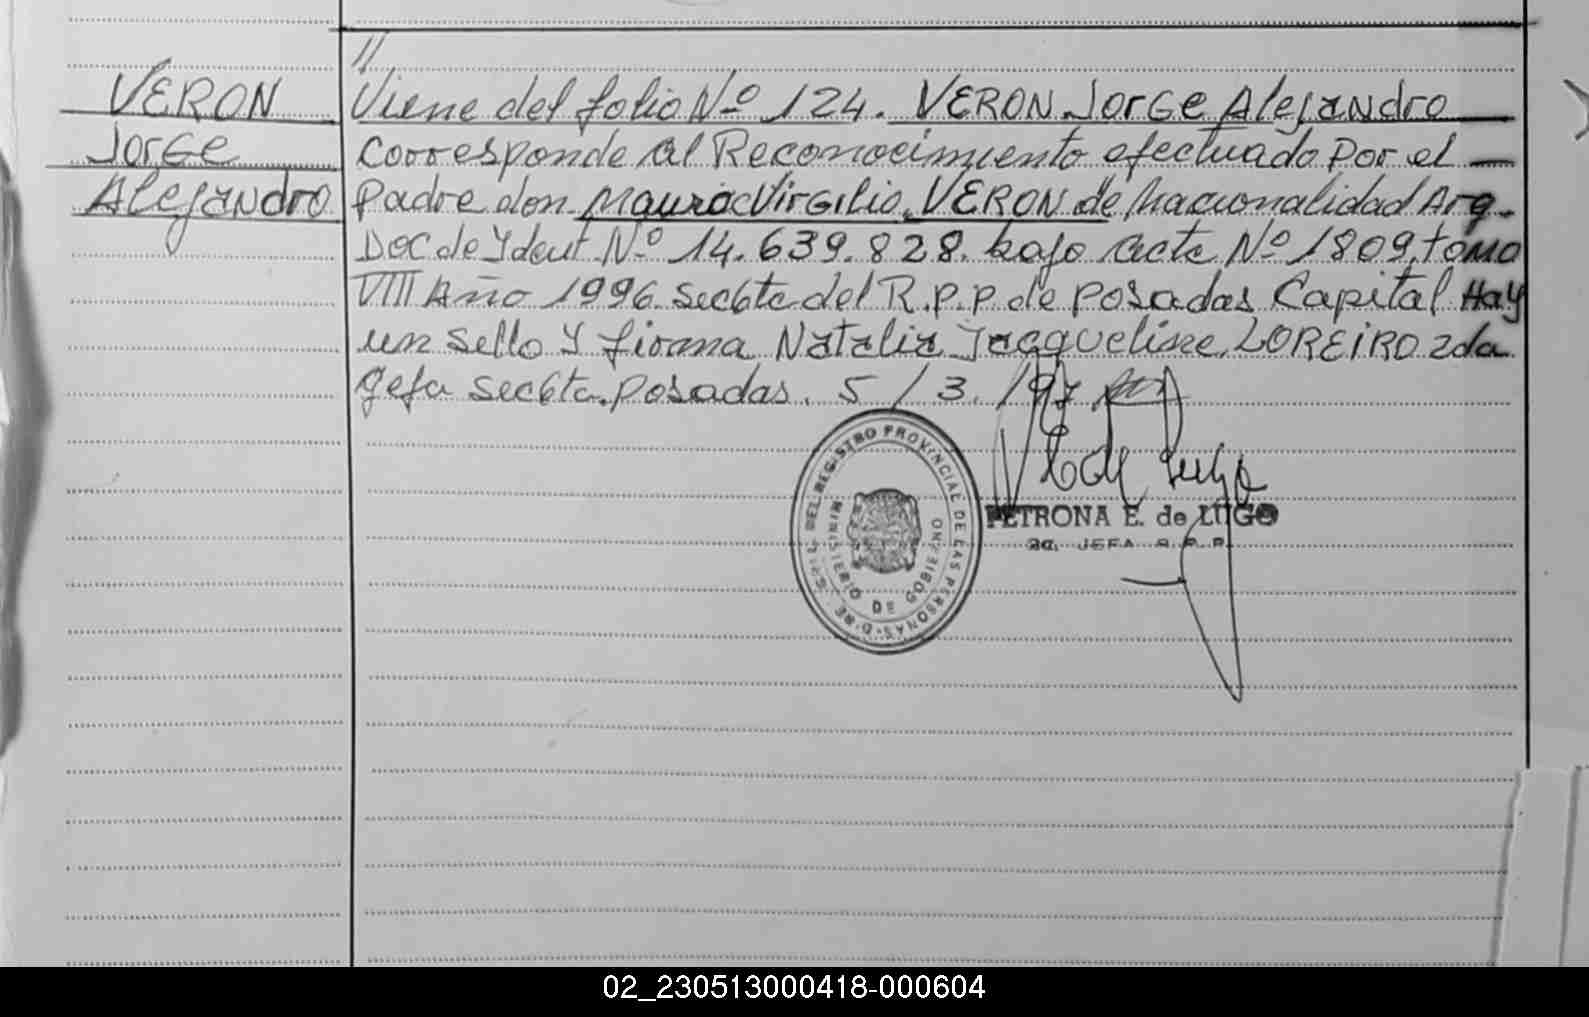 //
VERON
Jorge
Alejandro
Viene del folio Nº 124. VERON Jorge Alejandro
Corresponde al Reconocimiento efectuado por el
padre don Mauro Virgilio VERON de Nacionalidad Arg.
Doc de Ident Nº 14.639.828. bajo acta Nº 1809. tomo
VIII Año 1996. Secbta del R.P.P. de posadas Capital Hay
un sello Y firma Natalia Jacqueline LOREIRO 2da
gefa secbta. posadas. 5 / 3. / 97
DEL REGISTRO PROVINCIAL DE LAS PERSONAS
MINISTERIO DE GOBIERNO
PETRONA E. de LUGO
JEFA R.P.P.
02_230513000418-000604